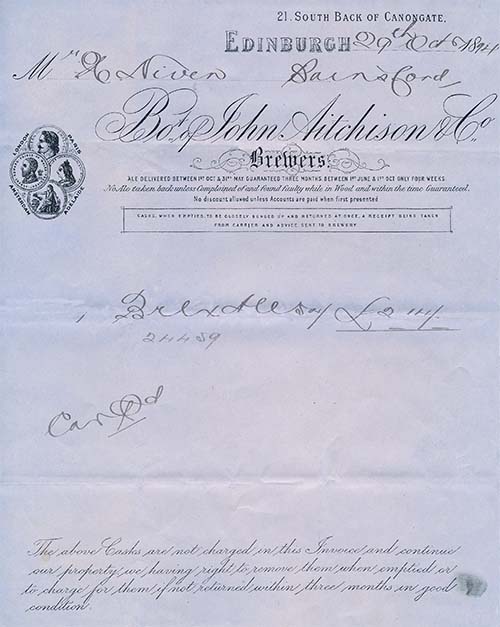 21. South Back of Canongate.
Edinburgh 29th Oct 1894
Mrs Niven
Bot. of John Aitchison & Co.
Brewers
LONDON PARIS
AMSTERDAM ADELAIDE
ALE DELIVERED BETWEEN 1ST OCT & 31ST MAY GUARANTEED THREE MONTHS. BETWEEN 1ST JUNE & 1ST OCT ONLY FOUR WEEKS.
No Ale taken back unless Complained of and found faulty while in Wood and within the time Guaranteed.
No discount allowed unless Accounts are paid when first presented
CASKS, WHEN EMPTIED, TO BE CLOSELY BUNGED UP AND RETURNED AT ONCE, A RECEIPT BEING TAKEN
FROM CARRIER AND ADVICE SENT TO BREWERY
1 Brl x Ale £2
24459
Car Pd
The above Casks are not charged in this Invoice and continue
our property, we having right to remove them when emptied or
to charge for them if not returned within three months in good
condition.